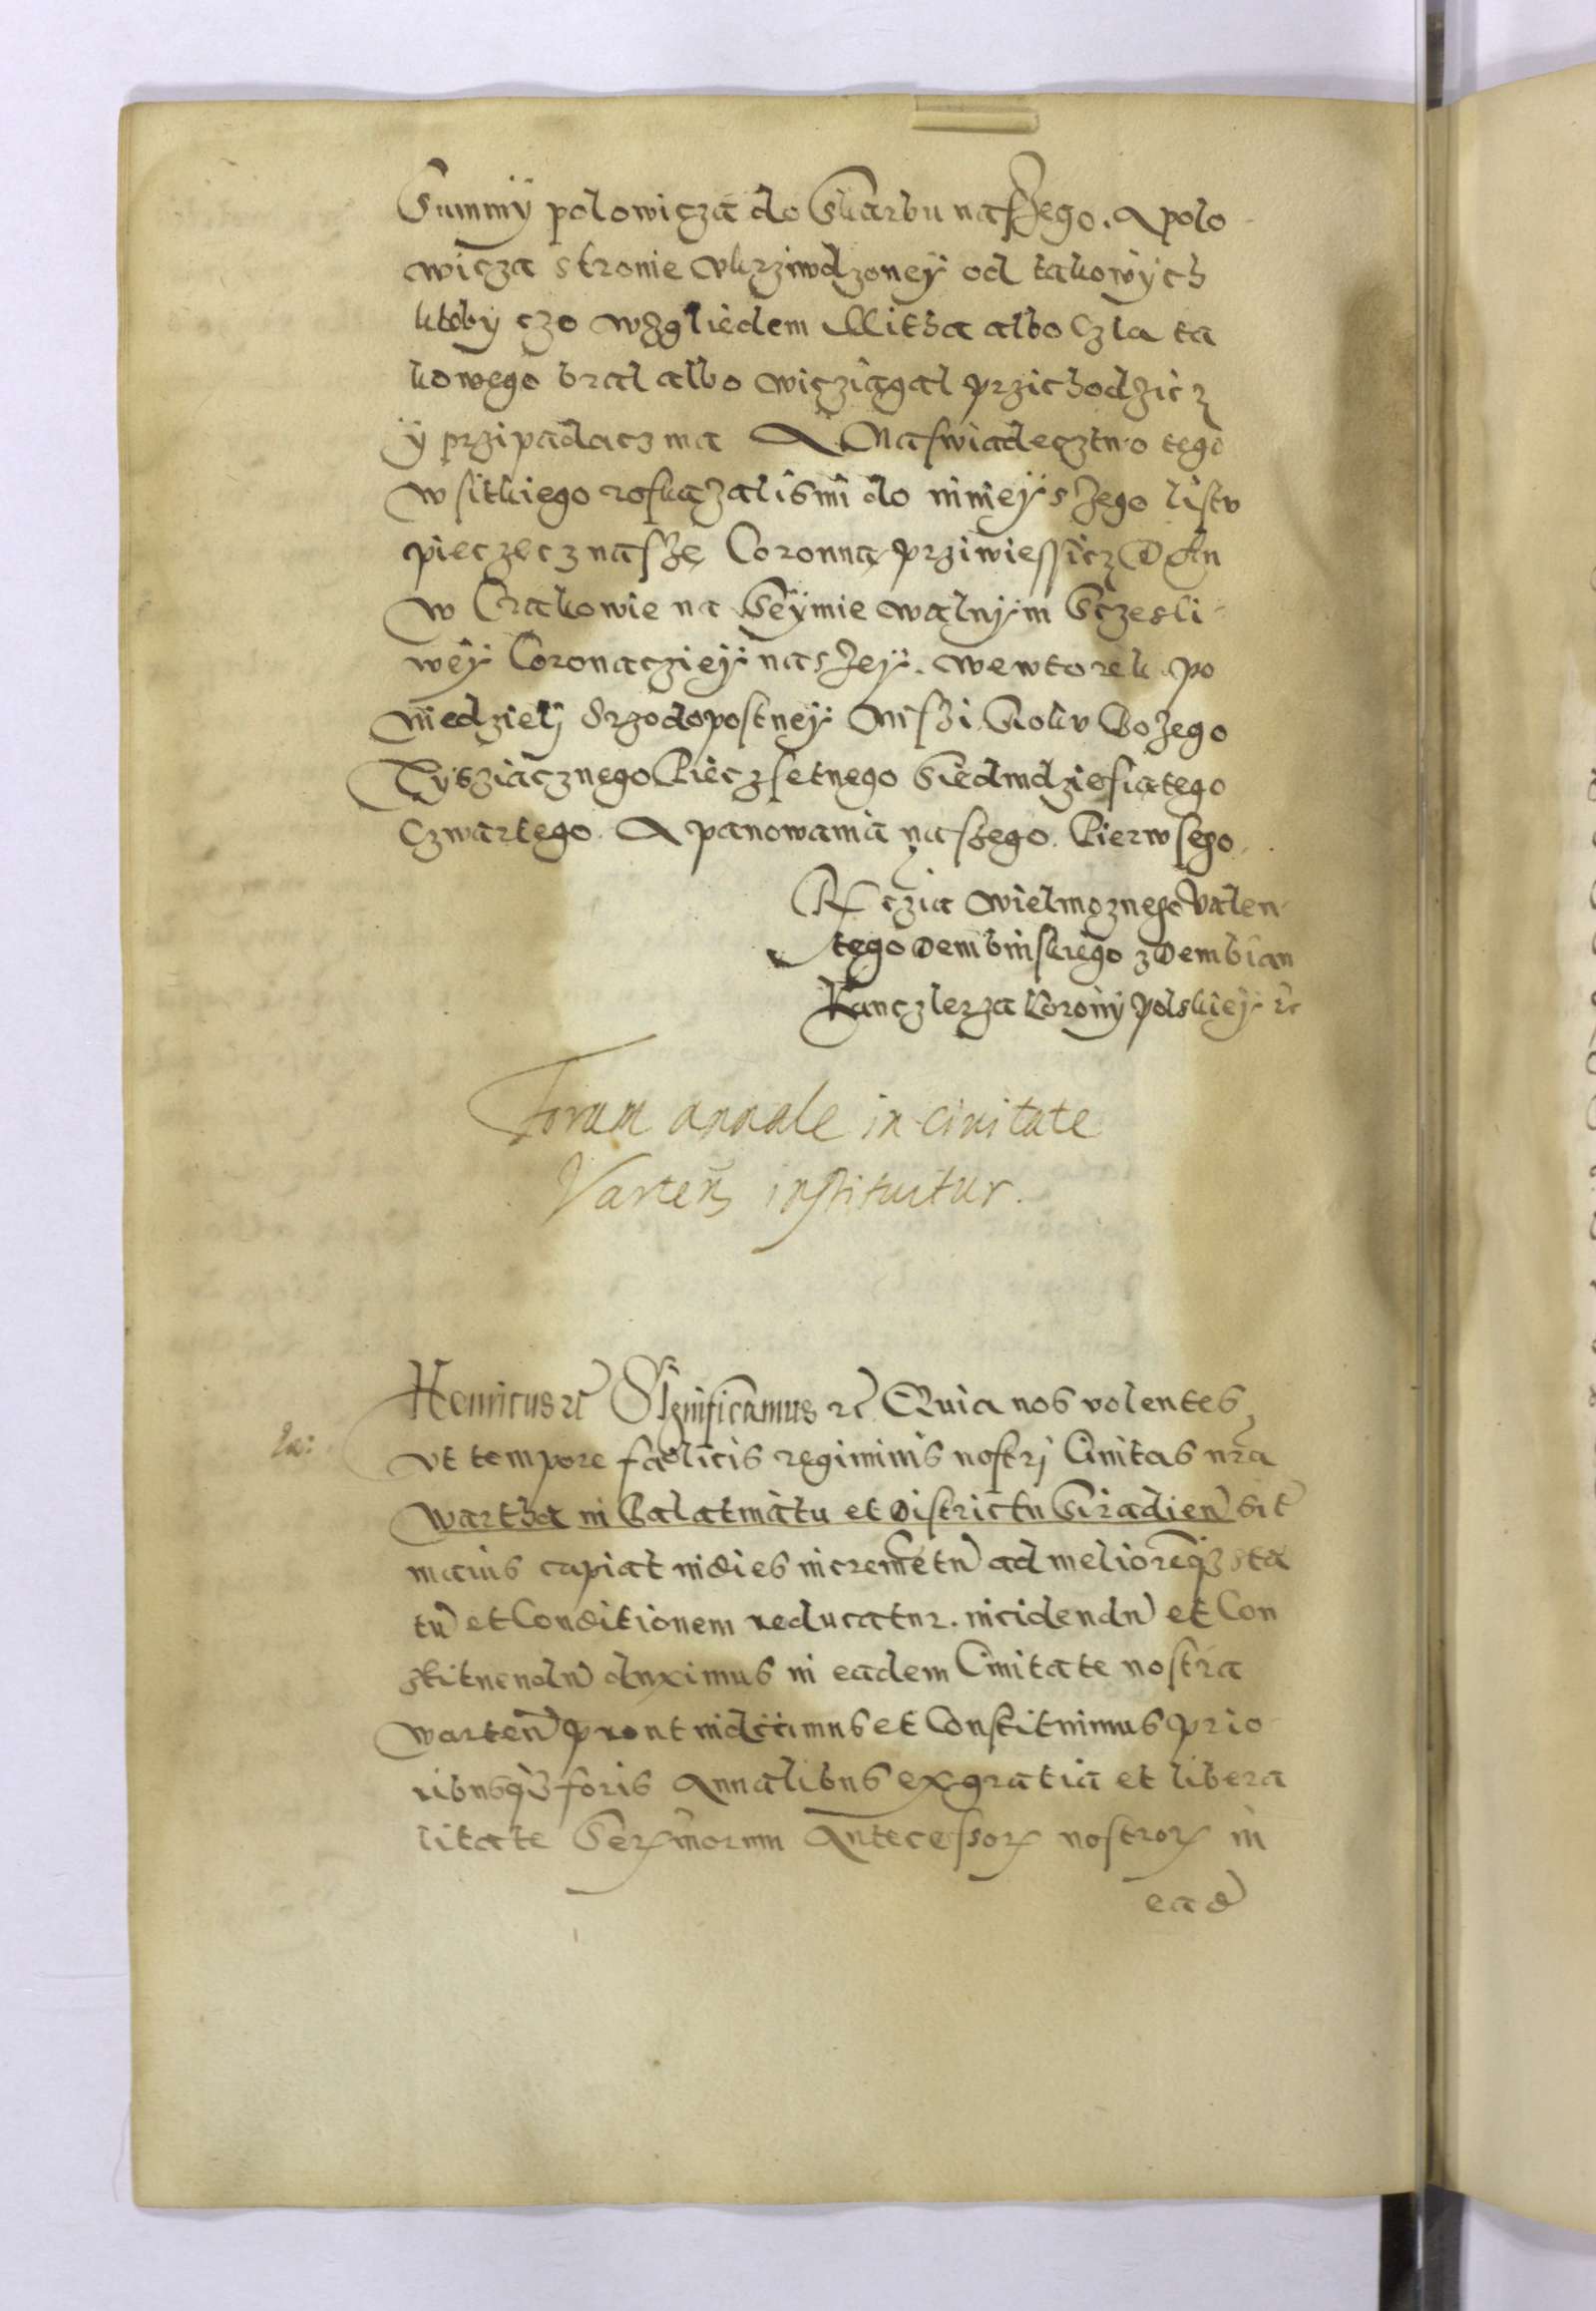 Summÿ polowicza do Skarbu naszego. A polo
wicza stronie vkrziwdzoneÿ od takowÿch
ktoby czo wzgliedem Mitha albo Czla ta
kowego bral albo wicziagal przichodzicz
ÿ przipadacz ma A Na swiadecztwo tego
wsitkiego roskazalismi do ninieÿszego listv
pieczecz nasze Coronna prziwiessicz Dan
w Crakowie na Seÿmie walnÿm Sczesli
weÿ Coronaczieÿ naszeÿ. we wtorek po
niedzielj Srzodopostneÿ Roku Bozego
Tÿsziacznego Pieczsetnego Siedmdziesiatego
Czwartego. A panowania naszego. Pierwsego.
Rczia Wielmoznego Valen
tego Dembinskiego z Dembian
Kanczlerza Koronÿ Polskieÿ etc
Forum annale in civitate
Varten instituitur.
Henricus etc Significamus etc Quia nos volentes
vt tempore faelicis regiminis nostrj Civitas nra
Wartha in Palatinatu et Districtu Siradien sit
maius capiat indies incremetu ad melioreq sta
tu et Conditionem reducatur. incidendu et Con
stituendu duximus in eadem Civitate nostra
Warten prout indicimus et Constituimus prio
ribusq foris Annalibus ex gratia et libera
litate Sermorum Antecessor nostror in
ead